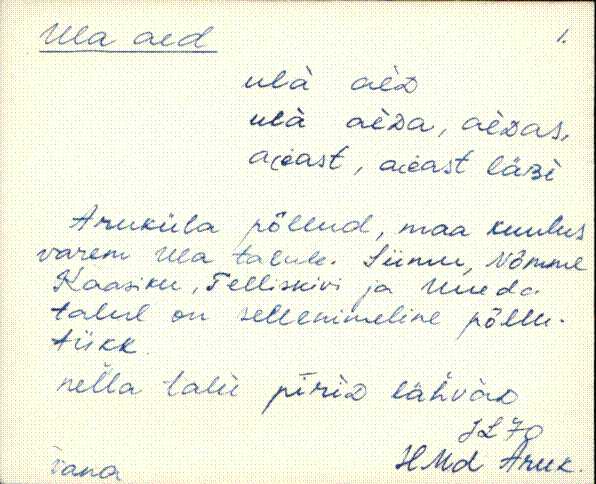 Ula aed 1.
ulà aèD
ulà aèDa, aèDas,
aiast, aiast läBi
Aruküla põllud, maa kuulus
varem Ula talule. Siimu, Nõmme
Kaasiku, Telliskivi ja Uueda
talul on sellenimeline põllu-
tükk.
nella talu pīriD lähväD
JL 70
HMd Aruk.